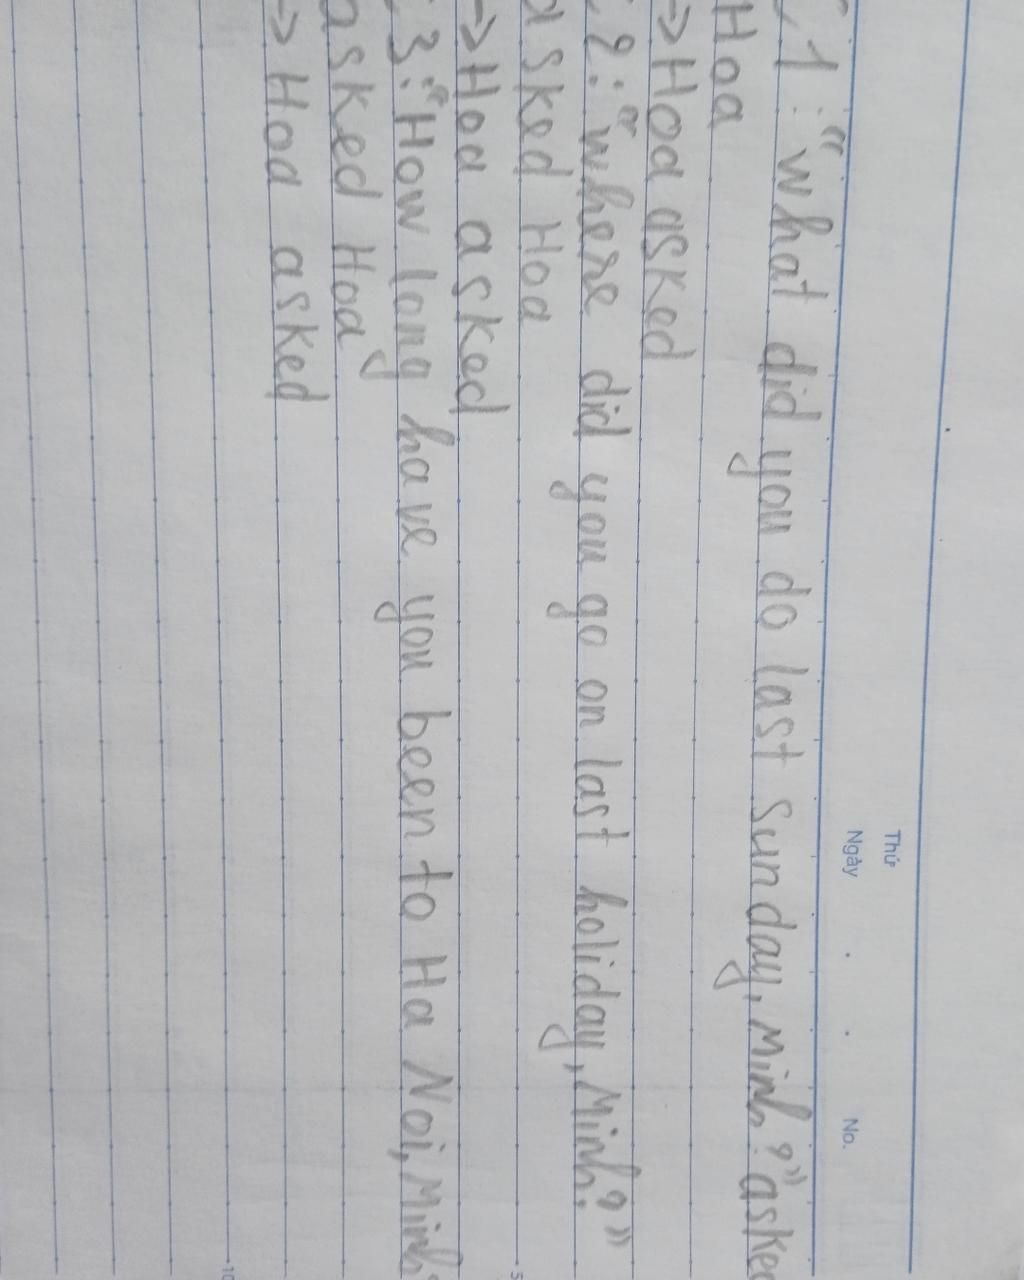 Thứ
Ngày . . No.
1: "what did you do last sunday, Minh?" asked
Hoa
-> Hoa asked
2: "where did you go on last holiday, Minh?"
asked Hoa
-> Hoa asked
5
3: "How long have you been to Ha Noi, Minh
asked Hoa
-> Hoa asked
10